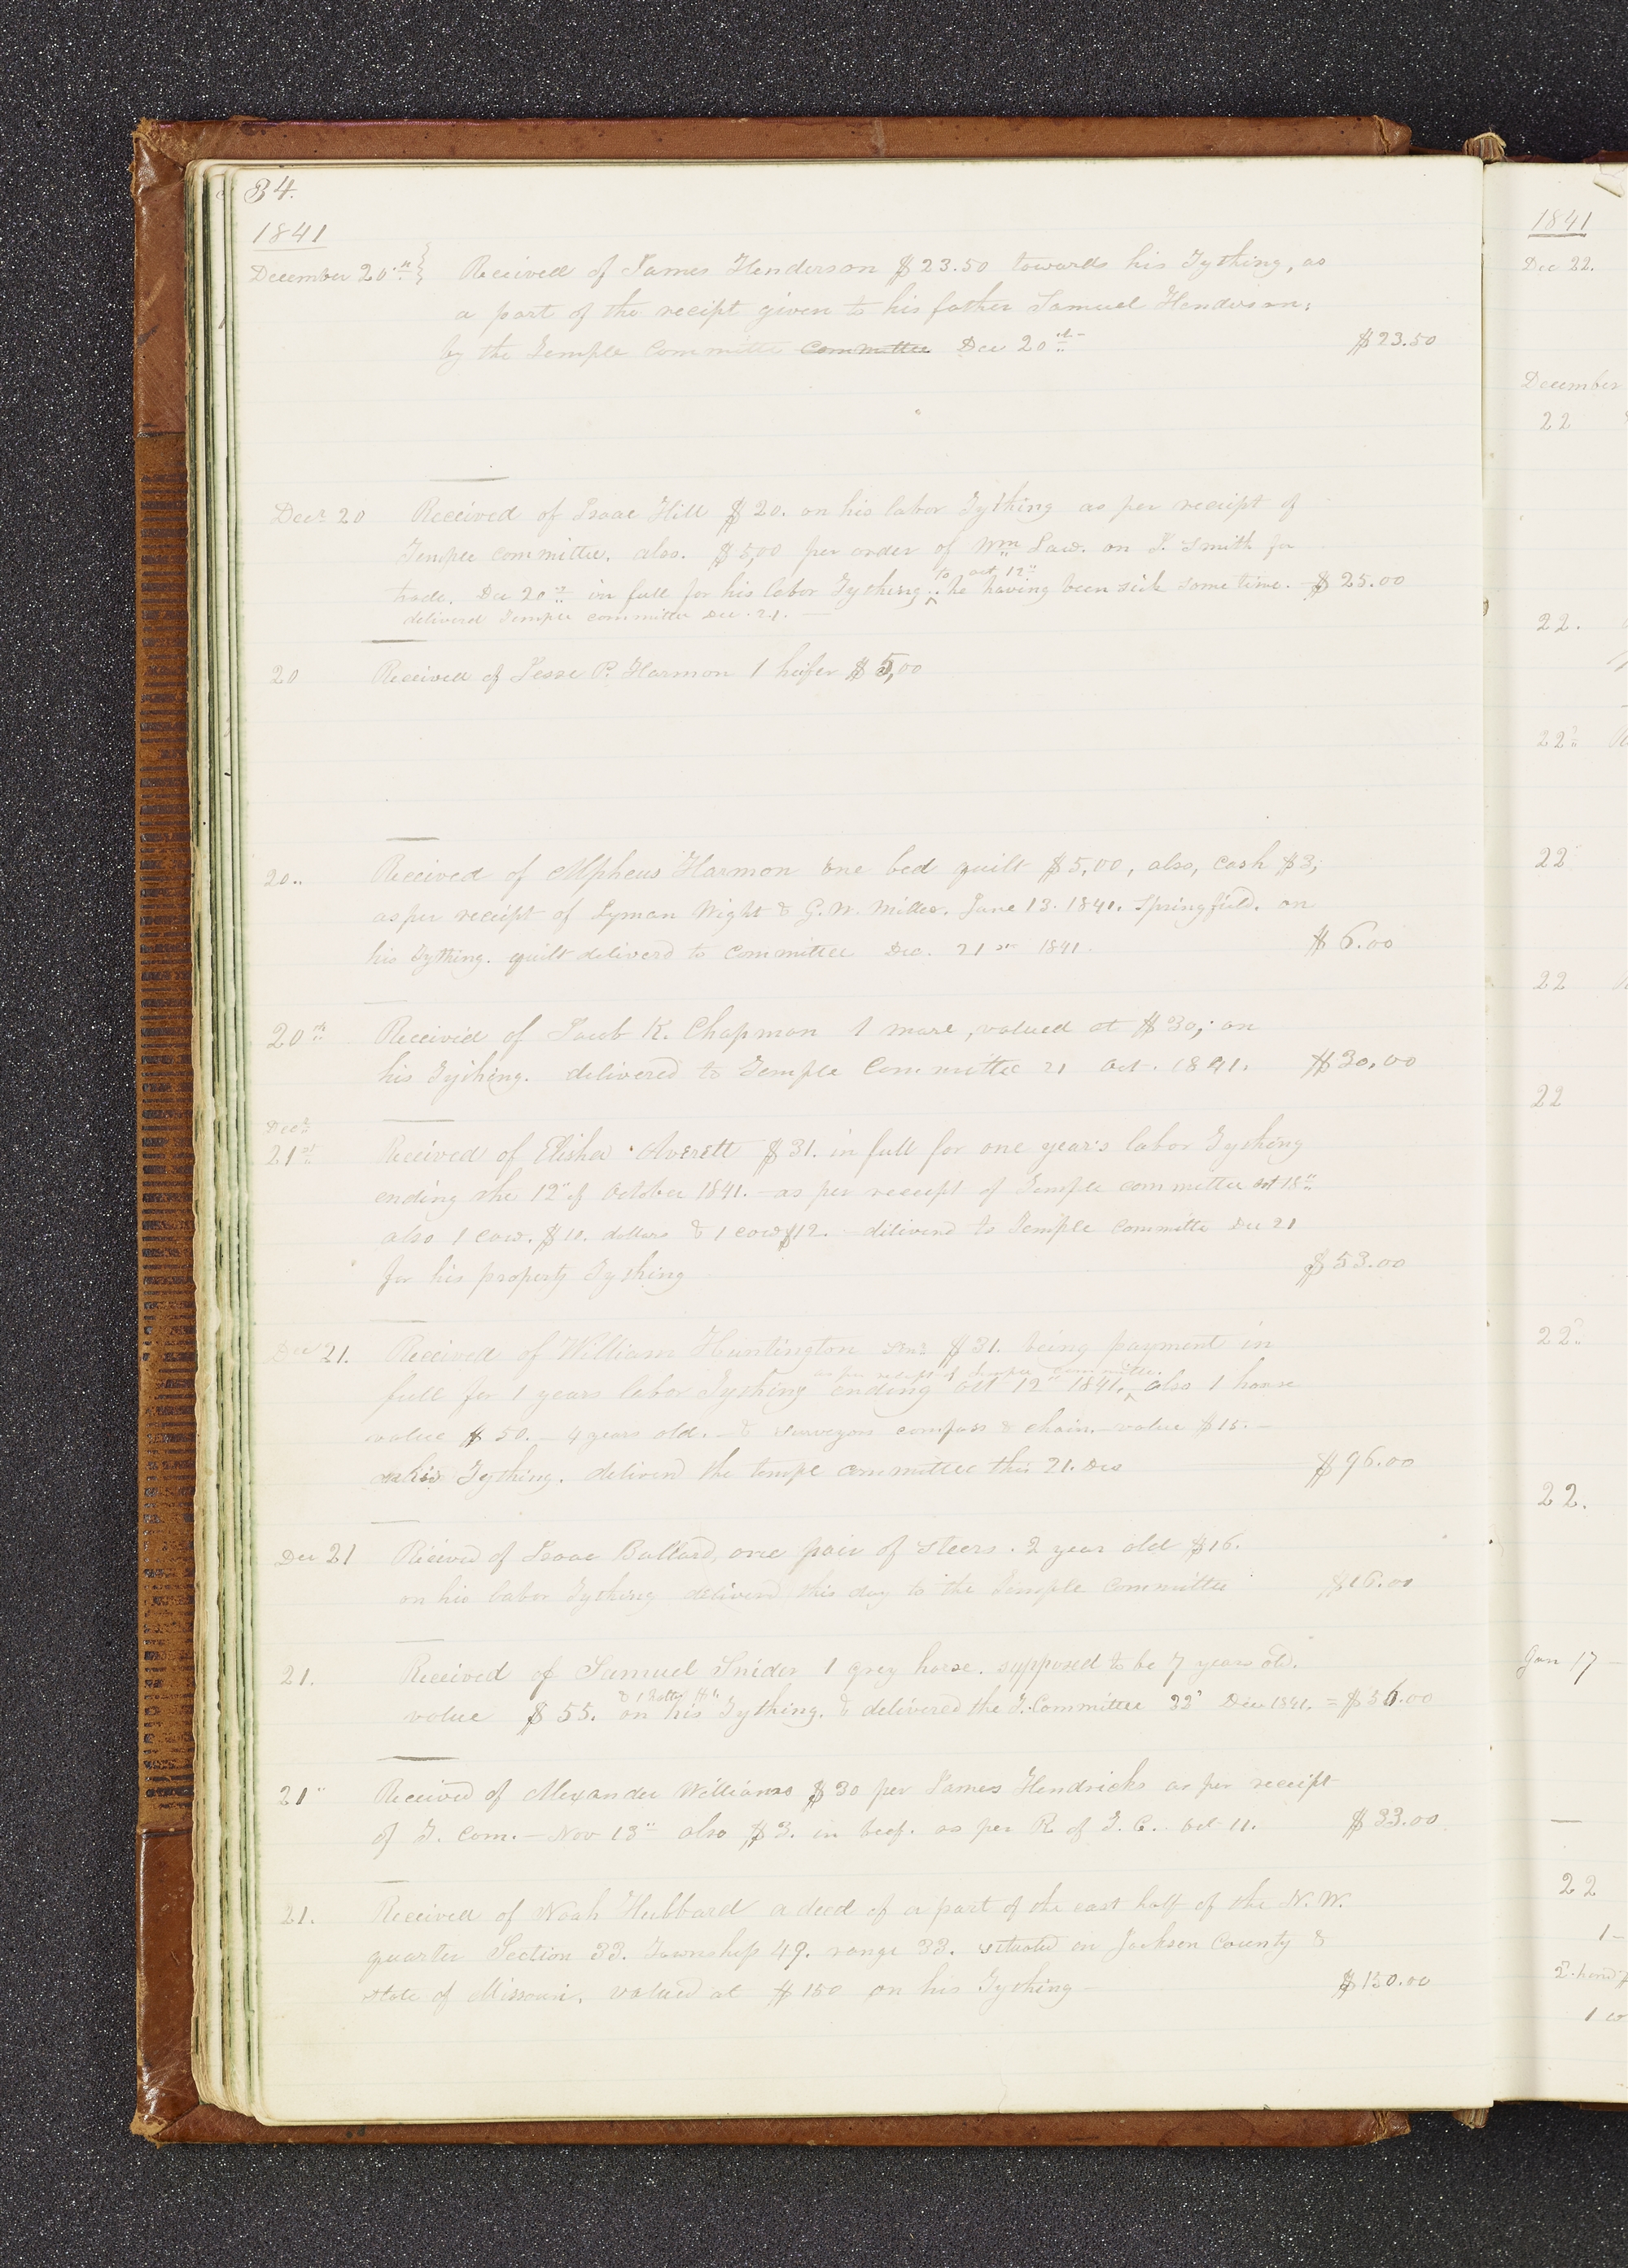 34.
1841
December 20th Received of James Henderson $23.50 towards his Tything, as
a part of the receipt given to his father Samuel Henderson;
by the Temple Committee Committee Dec 20th $23.50
Decr 20 Received of Isaac Hill $20. on his labor Tything as per receipt of
Temple committee. also. $5,00 per order of Wm Law. on J. Smith for
trade. Dec 20th in full for his labor Tything to oct 12" he having been sick some time. - $25.00
deliverd Temple committee Dec. 21. —
20 Received of Jesse P. Harmon 1 heifer $5,00
20.. Received of Alpheus Harmon one bed quilt $5,00, also, cash $3;
as per receipt of Lyman Wight & G. W. Miller. June 13. 1841. Springfield. on
his Tything. quilt deliverd to committee Dec. 21st 1841. $6.00
20th Received of Jacob K. Chapman 1 mare, valued at $30,; on
his Tything. delivered to Temple Committee 21 Oct. 1841. $30,00
Decr
21st Received of Elisha Averett $31. in full for one year's labor Tything
ending the 12" of October 1841. - as per receipt of Temple committee oct 18"
also 1 cow. $10. dollars & 1 cow $12. deliverd to Temple Committe Dec 21
for his property Tything $53.00
Dec 21. Received of William Huntington Senr $31. being payment in
as per receipt of Temple committee.
full for 1 years labor Tything ending oct 12th 1841. also 1 horse
value $50. - 4 years old. - & surveyors compass & chain. - value $15. -
on his Tything. deliverd the temple committee this 21. Dec $96.00
Dec 21 Received of Isaac Bullard, one pair of steers. 2 year old $16.
on his labor Tything deliverd this day to the Temple Committee $16.00
21. Received of Samuel Snider 1 grey horse. supposed to be 7 years old.
value $55. on his Tything. & delivered the T. Committee 22d Dec 1841. = $56.00
21" Received of Alexander Williams $30 per James Hendricks as per receipt
of T. Com. - Nov 13" also $3. in beef. as per R of T. C. Oct 11. $33.00
21. Received of Noah Hubbard a deed of a part of the east half of the N. W.
quarter Section 33. Township 49. range 33. situated on Jackson County &
state of Missouri, valued at $150 on his Tything - $150.00
1841
Dec 22.
December
22
22.
22d
22
22
22
22d
22.
Jan 17
22